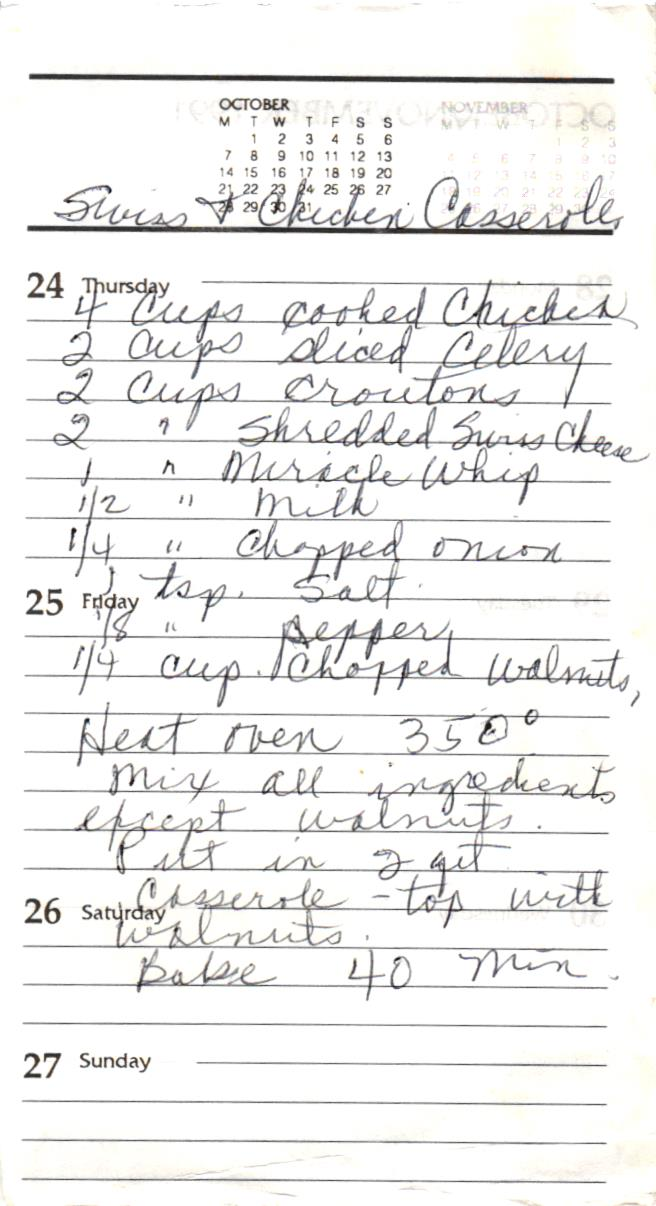 OCTOBER NOVEMBER
M T W T F S S M T W T F S S
1 2 3 4 5 6 1 2 3
7 8 9 10 11 12 13 4 5 6 7 8 9 10
14 15 16 17 18 19 20 11 12 13 14 15 16 17
21 22 23 24 25 26 27 18 19 20 21 22 23 24
28 29 30 31 25 26 27 28 29 30
Swiss & Chicken Casserole
24 Thursday
4 Cups cooked Chicken
2 Cups sliced Celery
2 Cups croutons
2 " Shredded Swiss Cheese
1 " Miracle Whip
1/2 " Milk
1/4 " Chopped onion
1 tsp. Salt
25 Friday
1/8 " pepper
1/4 cup. Chopped walnuts,
Heat oven 350°
Mix all ingredients
except walnuts.
Put in 2 qt
Casserole - top with
26 Saturday
walnuts.
Bake 40 Min.
27 Sunday